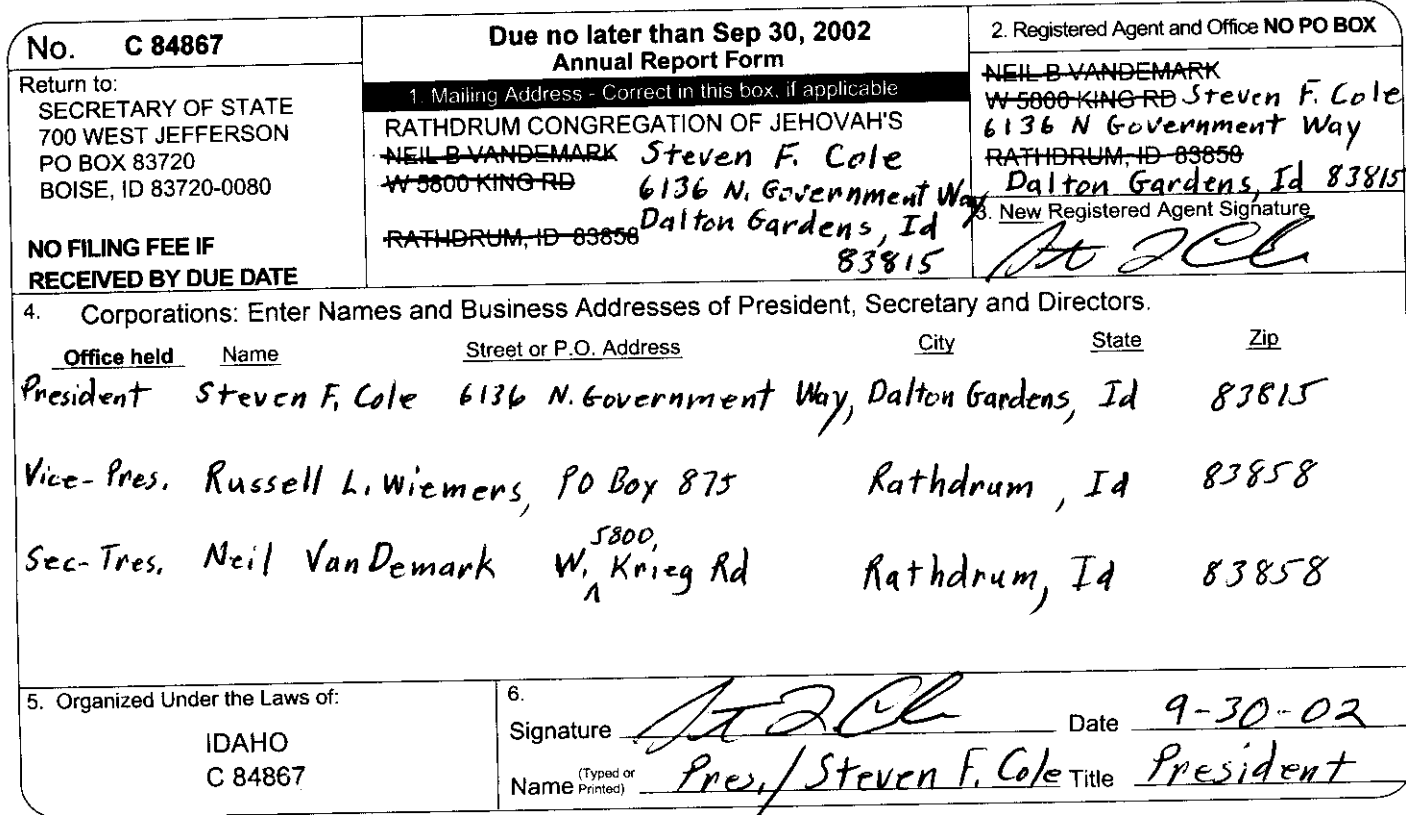 No. C 84867
Return to:
SECRETARY OF STATE
700 WEST JEFFERSON
PO BOX 83720
BOISE, ID 83720-0080
NO FILING FEE IF
RECEIVED BY DUE DATE
Due no later than Sep 30, 2002
Annual Report Form
1. Mailing Address - Correct in this box, if applicable
RATHDRUM CONGREGATION OF JEHOVAH'S
NEIL B VANDEMARK Steven F. Cole
W 5800 KING RD 6136 N. Government Way,
RATHDRUM, ID 83858 Dalton Gardens, Id
83815
2. Registered Agent and Office NO PO BOX
NEIL B VANDEMARK
W 5800 KING RD Steven F. Cole
6136 N Government Way
RATHDRUM, ID 83858
Dalton Gardens, Id 83815
3. New Registered Agent Signature
4. Corporations: Enter Names and Business Addresses of President, Secretary and Directors.
Office held Name Street or P.O. Address City State Zip
President Steven F. Cole 6136 N. Government Way, Dalton Gardens, Id 83815
Vice-Pres. Russell L. Wiemers, PO Box 875 Rathdrum, Id 83858
Sec-Tres. Neil VanDemark W. 5800, Krieg Rd Rathdrum, Id 83858
5. Organized Under the Laws of:
IDAHO
C 84867
6.
Signature Date 9-30-02
Name (Typed or Printed) Pres./Steven F. Cole Title President